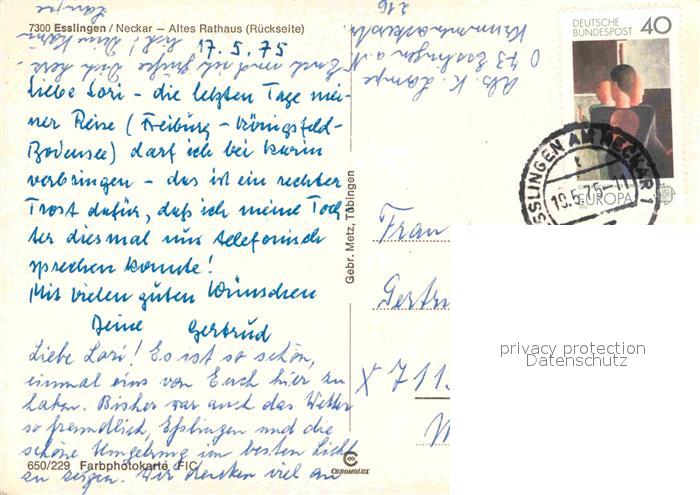 7300 Esslingen / Neckar – Altes Rathaus (Rückseite)
17.5.75
Liebe Lori – die letzten Tage mei-
ner Reise (Freiburg – Königsfeld –
Bodensee) darf ich bei Karin
verbringen – das ist ein rechter
Trost dafür, daß ich meine Toch-
ter diesmal nur telefonisch
sprechen konnte!
Mit vielen guten Wünschen
Deine Gertrud
Liebe Lori! Es ist so schön,
einmal eins von Euch hier zu
haben. Bisher war auch das Wetter
so freundlich, Esslingen und die
schöne Umgebung im besten Licht
zu zeigen. Wir denken viel an
Euch und ich grüße Dich herz-
lich! Deine Karin
Lampe
650/229 Farbphotokarte FIC
CHROMOLUX
Gebr. Metz, Tübingen
Abs. K. Lampe
D 73 Esslingen a. N.
216
DEUTSCHE
BUNDESPOST
40
EUROPA
ESSLINGEN AM NECKAR 1
19.5.75-11
Frau
Gertr
X 711
privacy protection
Datenschutz